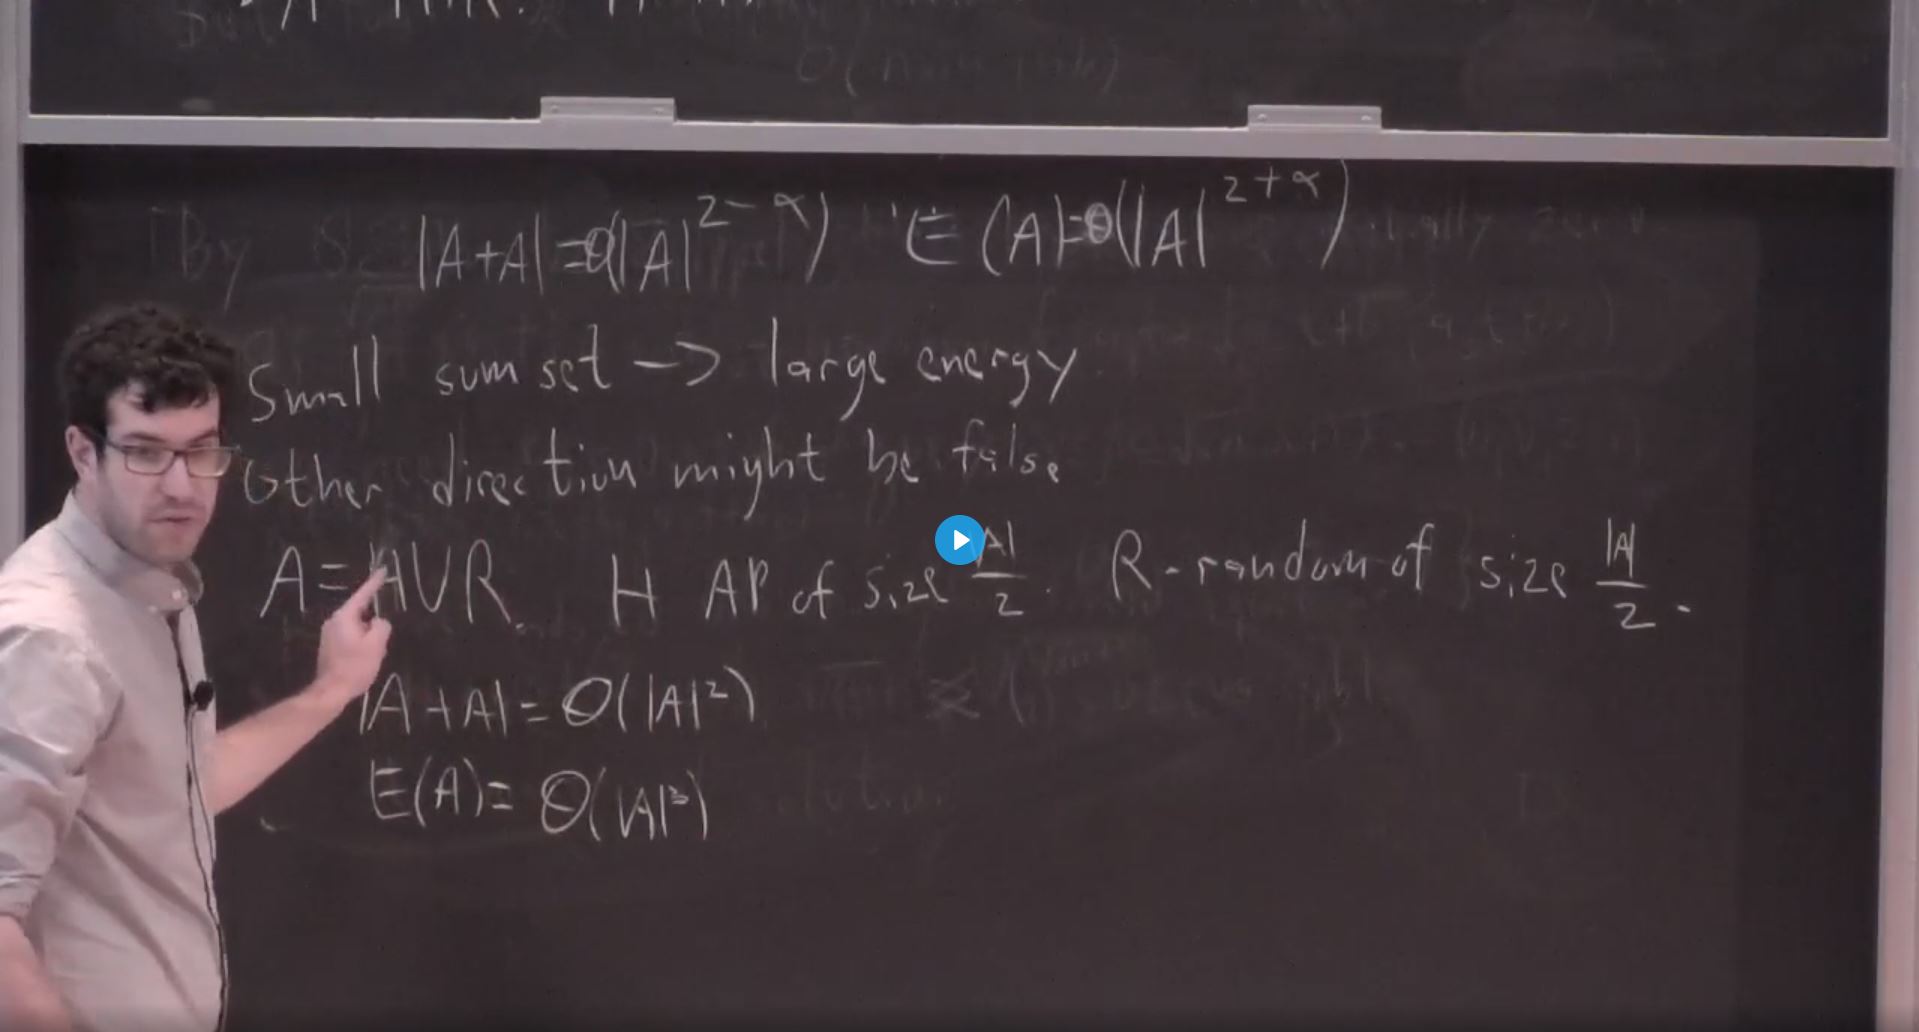 |A+A| = Θ(|A|^{2-α}) E(A) = Θ(|A|^{2+α})
Small sum set -> large energy
Other direction might be false
A = H ∪ R. H AP of size |A|/2. R - random of size |A|/2.
|A+A| = Θ(|A|²)
E(A) = Θ(|A|³)